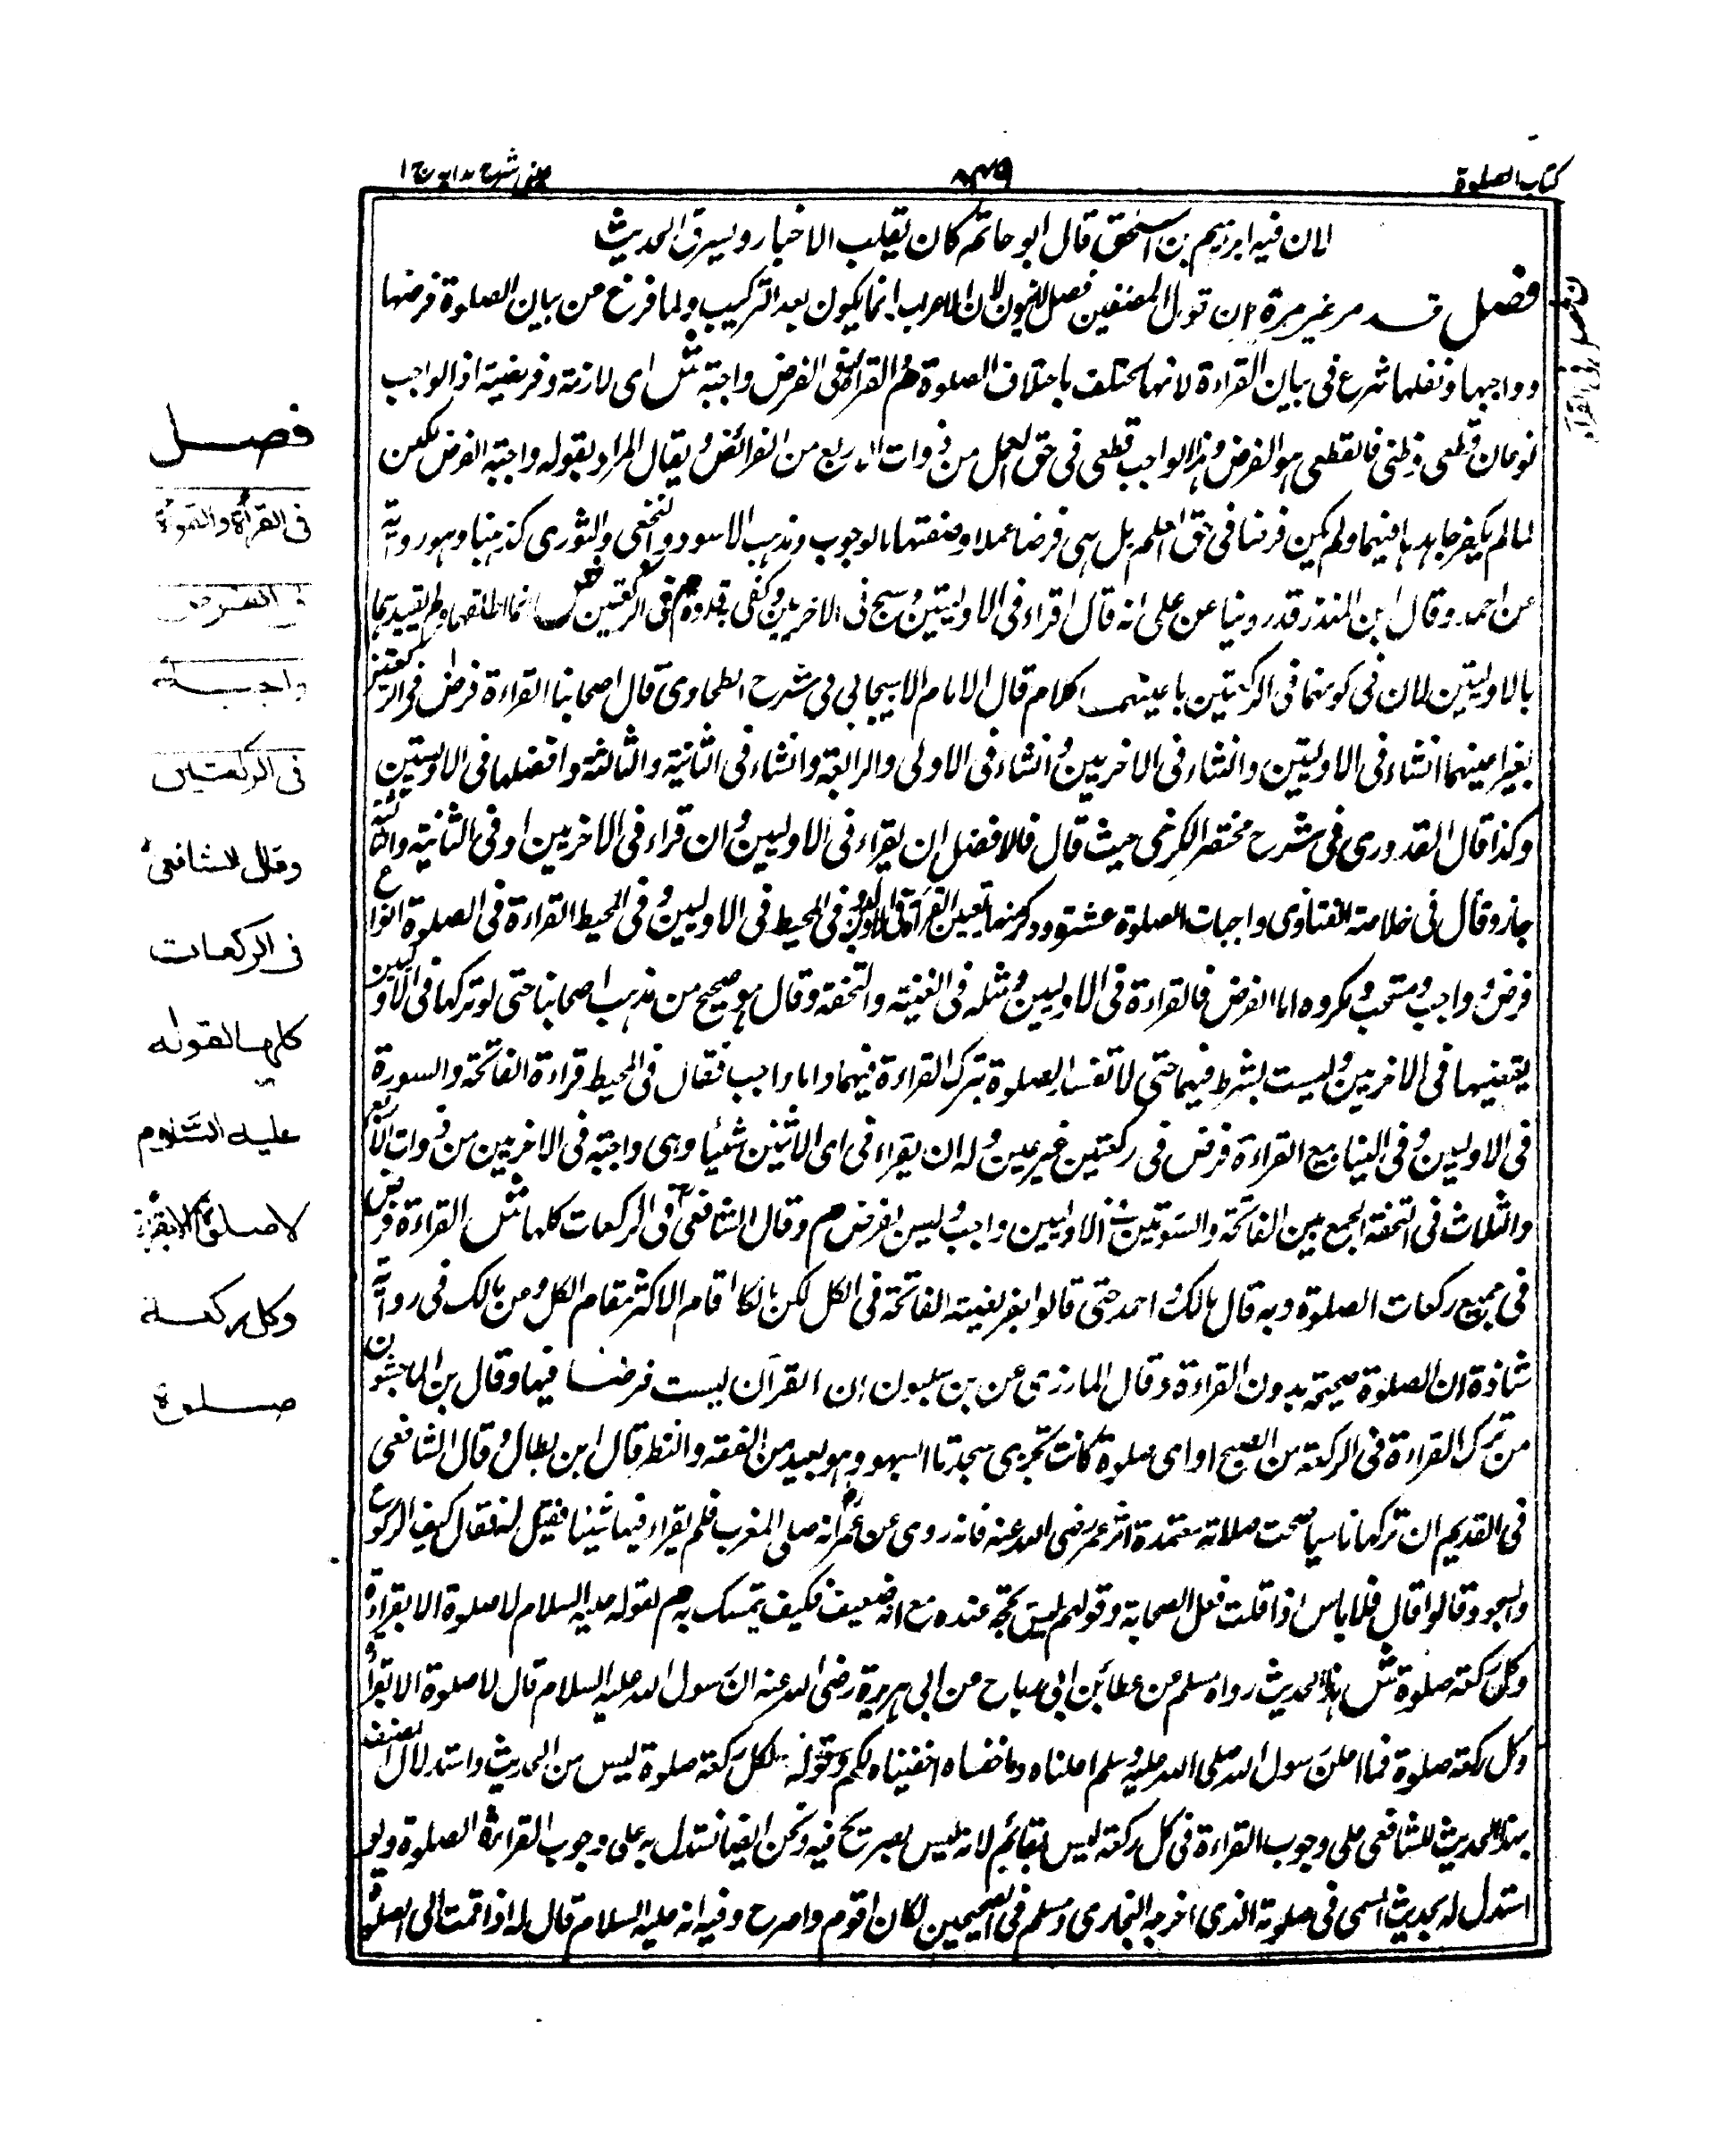 كتاب الصلوة
٨٣٩
عينى شرح هدايه ج ١
لان فيه ابراهيم بن اسحق قال ابو حاتم كان يقلب الاخبار ويسرق الحديث
فصل قد مر غير مرة ان قول المصنفين فصل لان الاعراب انما يكون بعد التركيب ولما فرغ من بيان الصلوة فرضها
وواجبها ونفلها شرع فى بيان القراءة لانها تختلف باختلاف الصلوة م القراءة فى الفرض واجبة ش اى لازمة وفريضة اذ الواجب
نوعان قطعى وظنى فالقطعى هو الفرض وهذا الواجب قطعى فى حق العمل من ذوات الاربع من الفرائض ويقال المراد بقوله واجبة الفرض لكن
لما لم يكفر جاحدها فيهما ولم يكن فرضا فى حق العلم بل هى فرضا عملا وصفتها بالوجوب ومذهب الاسود والنخعى والثورى كمذهبنا وهو رواية
عن احمد وقال ابن المنذر قد روينا عن على انه قال اقراء فى الاوليين وسبح فى الاخريين وكفى به قدوة م فى الركعتين ش انما اطلقهما ولم يقيد بهما
بالاوليين لان فى كونهما فى الركعتين باعينهما كلام قال الامام الاسبيجابى فى شرح الطحاوى قال اصحابنا القراءة فرض فى الركعتين
بغير اعينهما انشاء فى الاوليين وانشاء فى الاخريين وانشاء فى الاولى والرابعة وانشاء فى الثانية والثالثة وافضلها فى الاوليين
وكذا قال القدورى فى شرح مختصر الكرخى حيث قال فالافضل ان يقراء فى الاوليين وان قراء فى الاخريين او فى الثانية والثالثة
جاز وقال فى خلاصة الفتاوى واجبات الصلوة عشرة وذكر منها تعيين القراءة فى الاوليين فى المحيط فى الاوليين وفى المحيط القراءة فى الصلوة انواع
فرض وواجب ومستحب ومكروه اما الفرض فالقراءة فى الاوليين ومثله فى الغنية والتحفة وقال هو صحيح من مذهب اصحابنا حتى لو تركها فى الاوليين
يقضيها فى الاخريين وليست بشرط فيهما حتى لا تفسد الصلوة بترك القراءة فيهما واما واجب فقال فى المحيط قراءة الفاتحة والسورة
فى الاوليين وفى الينابيع القراءة فرض فى ركعتين غير عين وله ان يقراء فى اى الاثنين شيئا وهى واجبة فى الاخريين من ذوات الاربع
والثلاث فى التحفة الجمع بين الفاتحة والسورتين فى الاوليين واجب وليس بفرض م وقال الشافعى فى الركعات كلها ش القراءة فرض
فى جميع ركعات الصلوة وبه قال مالك واحمد حتى قالوا بفريضية الفاتحة فى الكل لكن مالكا اقام الاكثر مقام الكل ومن مالك فى رواية
شاذة ان الصلوة صحيحة بدون القراءة وقال المازرى عن بن سلبون ان القرآن ليست فرضا فيها وقال بن الماجشون
من ترك القراءة فى الركعة من الصبح او اى صلوة كانت تجزى سجدتا السهو وهو بعيد من الفقه والنظر قال ابن بطال وقال الشافعى
فى القديم ان تركها ناسيا صحت صلاته معتمدة اثر عمر رضى الله عنه فانه روى عن عمر انه صلى المغرب فلم يقراء فيها شيئا فقيل له فقال كيف الركوع
والسجود قالوا قال فلا باس اذا قلت فعل الصحابة وقولهم ليس بحجة عنده مع انه ضعيف فكيف يتمسك به م لقوله عليه السلام لا صلوة الا بقراءة
وكل ركعة صلوة ش هذا الحديث رواه مسلم من عطا بن ابى رباح من ابى هريرة رضى الله عنه ان رسول الله عليه السلام قال لا صلوة الا بقراءة
وكل ركعة صلوة فما اعلن رسول الله صلى الله عليه وسلم اعلناه وما اخفاه اخفيناه لكم وقوله لكل ركعة صلوة ليس من الحديث واستدلال المصنف
بهذا الحديث للشافعى على وجوب القراءة فى كل ركعة ليس بقائم لانه ليس بصريح فيه ونحن ايضا نستدل به على وجوب القراءة الصلوة ولو
استدل له بحديث المسى فى صلوته الذى اخرجه البخارى ومسلم فى الصحيحين لكان اقوم واصرح وفيه انه عليه السلام قال له اذا قمت الى الصلوة
فصل
فى القراءة والقراءة
فى الفرض
واجبة
فى الركعتين
وقال الشافعى
فى الركعات
كلها لقوله
عليه السلام
لا صلوة الا بقراءة
وكل ركعة
صلوة